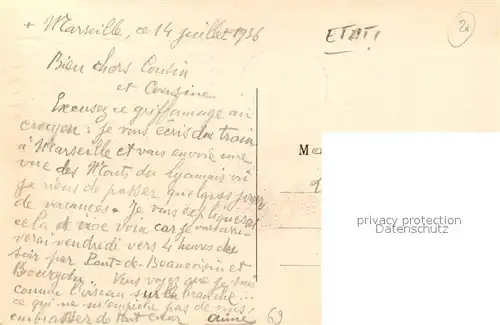 + Marseille, ce 14 juillet 1936
ETAT1
2
Bien chers Cousin
et Cousine
Excusez ce griffonnage au
crayon : je vous écris du train
à Marseille et vous envoie une
vue des Monts du lyonnais où
je viens de passer quelques jours
de vacances. Je vous expliquerai
cela de vive voix car je vous
verai vendredi vers 4 heures du
soir par Pont-de-Beauvoisin et
Bourgoin. Vous voyez que je suis
comme l'oiseau sur la branche...
ce qui ne m'empêche pas de vous
embrasser de tout cœur aimé
69
M
privacy protection
Datenschutz